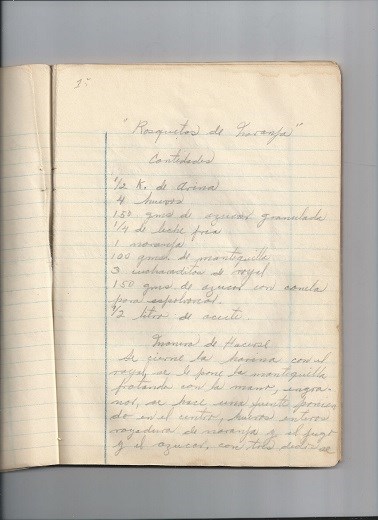 "Rosquetas de Naranja"
Cantidades
1/2 K. de Arina
4 huevos
150 gms. de azucar granulada
1/4 de leche fria
1 naranja
100 gms. de mantequilla
3 cucharaditas de royal
150 gms. de azucar con canela
para espolvorear.
1/2 litro de aceite.
Manera de Hacerse
Se cierne la harina con el
royal, se le pone la mantequilla
frotando con la mano,
se hace una fuente
do en el centro, huevos enteros
raspadura de naranja y el jugo
y el azucar, con tres dedos se